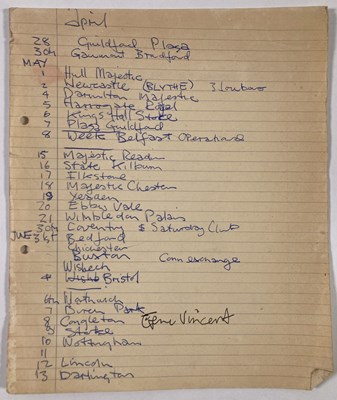 April
28 Guildford Plaza
30th Gaumont Bradford
MAY
1 Hull Majestic
2 Newcastle (BLYTHE)
4 Darlington Majestic
5 Harrogate Royal
6 Kings Hall Stoke
7 Plaza Guildford
8 Week Belfast
15 Majestic Readin
16 State Kilburn
17 Ilkstone
18 Majestic Chester
19
20 Ebbw Vale
21 Wimbledon Palais
30th Coventry & Saturday Club
JUNE Bedford
Chichester
Buxton Corn exchange
Wisbech
4 Bristol
6th
7 Park
8 Congleton Gene Vincent
9 Stoke
10 Nottingham
11
12 Lincoln
13 Darlington